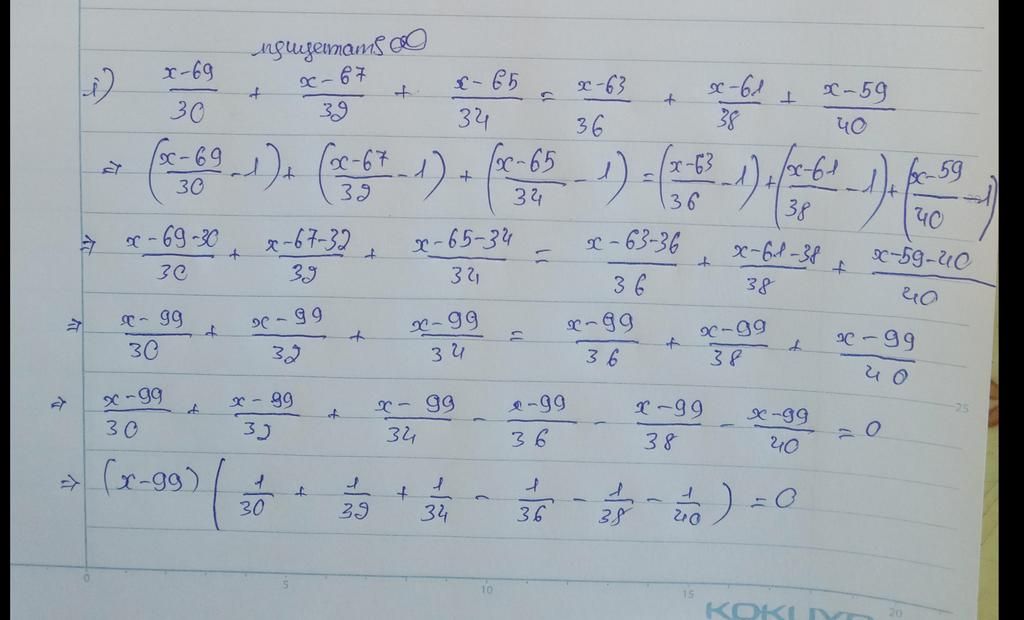 1) x-69/30 + x-67/32 + x-65/34 = x-63/36 + x-61/38 + x-59/40
⇒ (x-69/30 - 1) + (x-67/32 - 1) + (x-65/34 - 1) = (x-63/36 - 1) + (x-61/38 - 1) + (x-59/40 - 1)
⇒ x-69-30/30 + x-67-32/32 + x-65-34/34 = x-63-36/36 + x-61-38/38 + x-59-40/40
⇒ x-99/30 + x-99/32 + x-99/34 = x-99/36 + x-99/38 + x-99/40
⇒ x-99/30 + x-99/32 + x-99/34 - x-99/36 - x-99/38 - x-99/40 = 0
⇒ (x-99) (1/30 + 1/32 + 1/34 - 1/36 - 1/38 - 1/40) = 0
25
0 5 10 15 20
KOKUYO